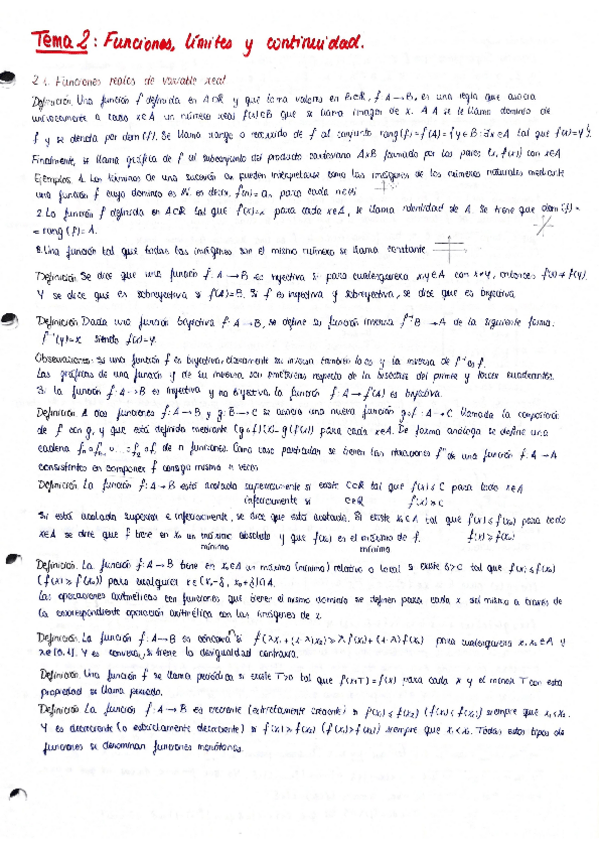 Tema 2: Funciones, límites y continuidad.
2.1. Funciones reales de variable real
Definición. Una función f definida en A⊂R y que toma valores en B⊂R, f: A→B, es una regla que asocia
unívocamente a cada x∈A un número real f(x)∈B que se llama imagen de x. A A se le llama dominio de
f y se denota por dom(f). Se llama rango o recorrido de f al conjunto rang(f)=f(A)={y∈B: ∃x∈A tal que f(x)=y}.
Finalmente, se llama gráfica de f al subconjunto del producto cartesiano AxB formado por los pares (x, f(x)) con x∈A
Ejemplos. 1. Los términos de una sucesión an pueden interpretarse como las imágenes de los números naturales mediante
una función f cuyo dominio es N, es decir, f(n)=an para cada n∈N
2. La función f definida en A⊂R tal que f(x)=x para cada x∈A, se llama identidad de A. Se tiene que dom(f)=
= rang(f)=A.
3. Una función tal que todas las imágenes son el mismo número se llama constante
Definición. Se dice que una función f: A→B es inyectiva si para cualesquiera x,y∈A con x≠y, entonces f(x)≠f(y).
Y se dice que es sobreyectiva si f(A)=B. Si f es inyectiva y sobreyectiva, se dice que es biyectiva.
Definición. Dada una función biyectiva f: A→B, se define su función inversa f⁻¹: B→A de la siguiente forma:
f⁻¹(y)=x siendo f(x)=y.
Observaciones: Si una función f es biyectiva, claramente su inversa también lo es y la inversa de f⁻¹ es f.
Las gráficas de una función y de su inversa son simétricas respecto de la bisectriz del primer y tercer cuadrantes.
Si la función f: A→B es inyectiva y no biyectiva, la función f: A→f(A) es biyectiva.
Definición. A dos funciones f: A→B y g: B→C se asocia una nueva función g∘f: A→C llamada la composición
de f con g, y que está definida mediante (g∘f)(x)=g(f(x)) para cada x∈A. De forma análoga se define una
cadena fn∘fn-1∘...∘f2∘f1 de n funciones. Como caso particular se tienen las iteraciones fⁿ de una función f: A→A
consistentes en componer f consigo misma n veces.
Definición. La función f: A→B está acotada superiormente si existe C∈R tal que f(x)≤C para todo x∈A
inferiormente si c∈R f(x)≥c
Si está acotada superior e inferiormente, se dice que está acotada. Si existe x₀∈A tal que f(x)≤f(x₀) para todo
x∈A se dice que f tiene en x₀ un máximo absoluto y que f(x₀) es el máximo de f. f(x)≥f(x₀)
mínimo mínimo
Definición. La función f: A→B tiene en x₀∈A un máximo (mínimo) relativo o local si existe δ>0 tal que f(x)≤f(x₀)
(f(x)≥f(x₀)) para cualquier x∈(x₀-δ, x₀+δ)∩A.
Las operaciones aritméticas con funciones que tienen el mismo dominio se definen para cada x del mismo a través de
la correspondiente operación aritmética con las imágenes de x.
Definición. La función f: A→B es cóncava si f(λx₁+(1-λ)x₂)≥λf(x₁)+(1-λ)f(x₂) para cualesquiera x₁,x₂∈A y
λ∈[0,1]. Y es convexa, si tiene la desigualdad contraria.
Definición. Una función f se llama periódica si existe T>0 tal que f(x+T)=f(x) para cada x y el menor T con esta
propiedad se llama periodo.
Definición. La función f: A→B es creciente (estrictamente creciente) si f(x₁)≤f(x₂) (f(x₁)<f(x₂)) siempre que x₁<x₂.
Y es decreciente (o estrictamente decreciente) si f(x₁)≥f(x₂) (f(x₁)>f(x₂)) siempre que x₁<x₂. Todos estos tipos de
funciones se denominan funciones monótonas.